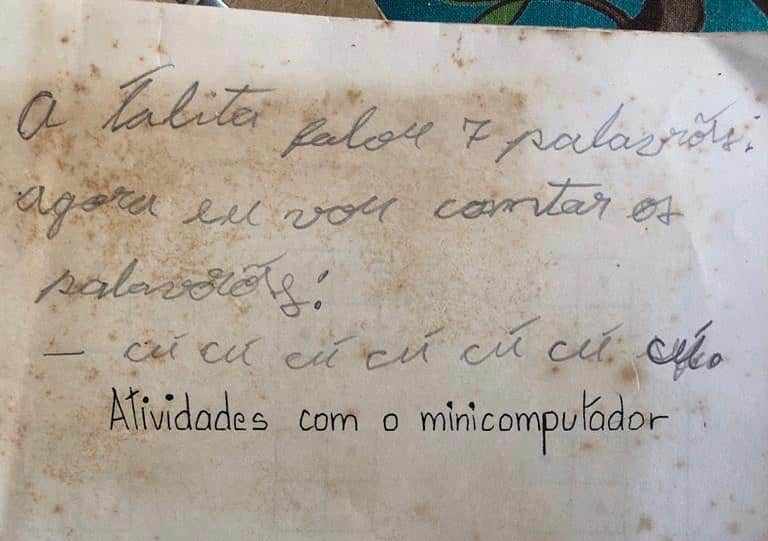 A talita falou 7 palavrões.
agora eu vou comtar os
palavrões:
— cú cú cú cú cú cú cú.
Atividades com o minicomputador